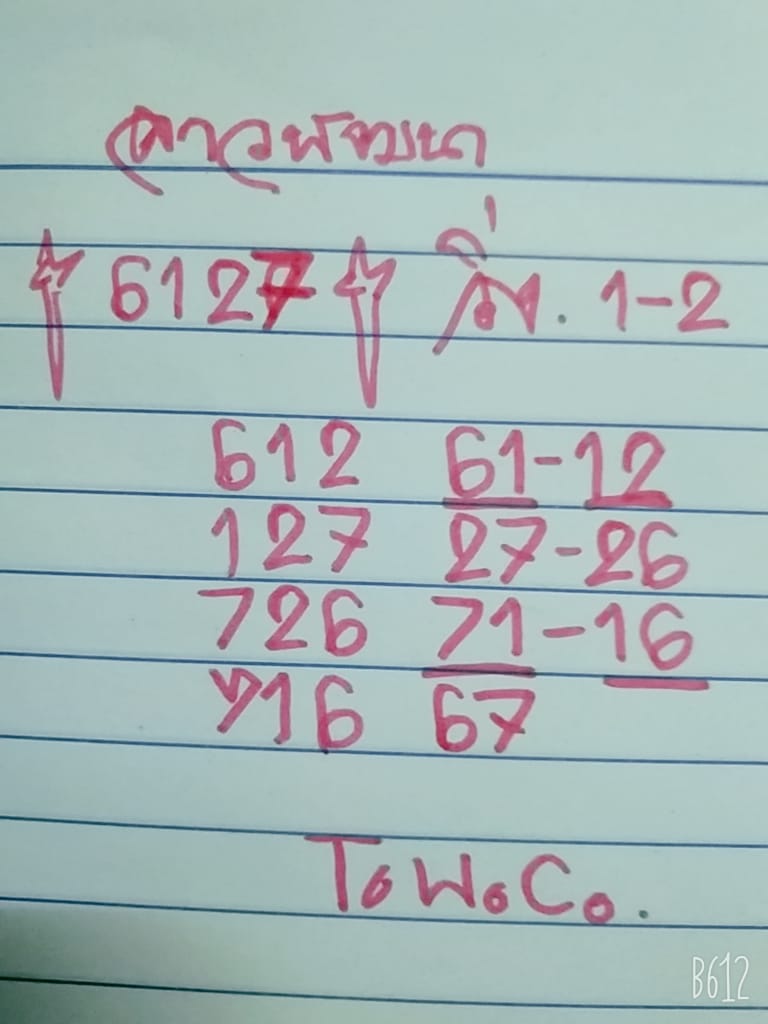 ลาวพัฒนา
6127 วิ่ง. 1-2
612 61-12
127 27-26
726 71-16
716 67
ToWoCo.
B612